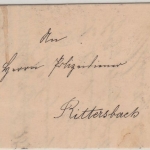 An
Herrn
Rittersbach